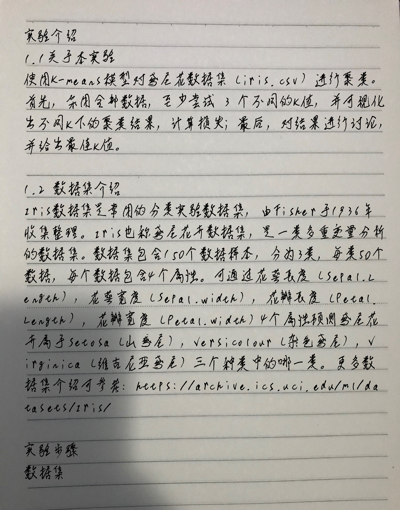 实验介绍
1.1关于本实验
使用K-means模型对鸢尾花数据集（iris.csv）进行聚类。
首先，采用全部数据，至少尝试3个不同的K值，并可视化
出不同K下的聚类结果，计算损失；最后，对结果进行讨论，
并给出最佳K值。
1.2 数据集介绍
Iris数据集是常用的分类实验数据集，由Fisher于1936年
收集整理。Iris也称鸢尾花卉数据集，是一类多重变量分析
的数据集。数据集包含150个数据样本，分为3类，每类50个
数据，每个数据包含4个属性。可通过花萼长度（Sepal.L
ength），花萼宽度（Sepal.width），花瓣长度（Petal.
Length），花瓣宽度（Petal.width）4个属性预测鸢尾花
卉属于Setosa（山鸢尾），versicolour（杂色鸢尾），v
irginica（维吉尼亚鸢尾）三个种类中的哪一类。更多数
据集介绍可参考：https://archive.ics.uci.edu/ml/da
tasets/iris/
实验步骤
数据集